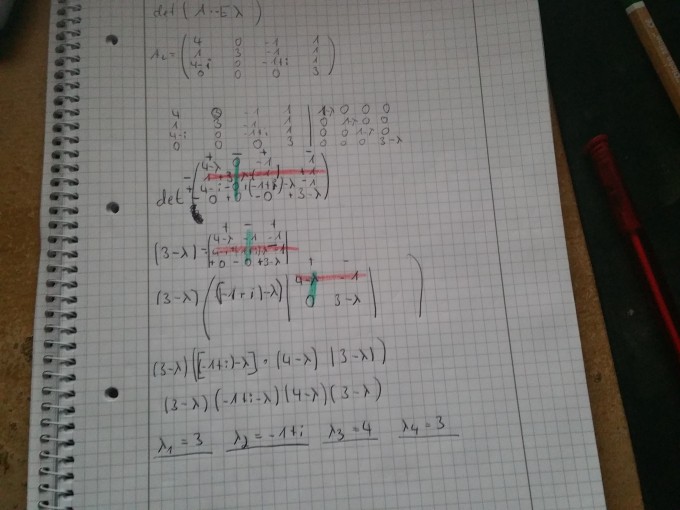 det(A-Eλ)
A₂ = ( 4 0 -1 1
1 3 -1 1
4-i 0 -1+i 1
0 0 0 3 )
4 0 -1 1 | 1-λ 0 0 0
1 3 -1 1 | 0 1-λ 0 0
4-i 0 -1+i 1 | 0 0 1-λ 0
0 0 0 3 | 0 0 0 3-λ
+ - + -
4-λ 0 -1 1
det
4-i -0 +(-1+i)-λ -1
- 0 +0 -0 +3-λ
(3-λ)
+ - +
4-λ -1 -1
+0 -0 +3-λ
(3-λ) ( (-1+i)-λ) | 4-λ -1
0 3-λ | )
(3-λ)([(-1+i)-λ] · (4-λ) (3-λ))
(3-λ)(-1+i-λ)(4-λ)(3-λ)
λ₁ = 3 λ₂ = -1+i λ₃ = 4 λ₄ = 3